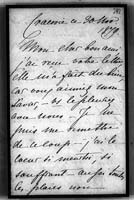 ce 30 Nov
1879
Mon cher bon ami
j'ai reçu votre lettre
elle m'a fait du bien,
car vous aimez mon
et le pleurez
avec nous. Je ne
puis me remettre
de ce coup – j'ai le
coeur si meurtri, si
souffrant – au fond toutes
les plaies